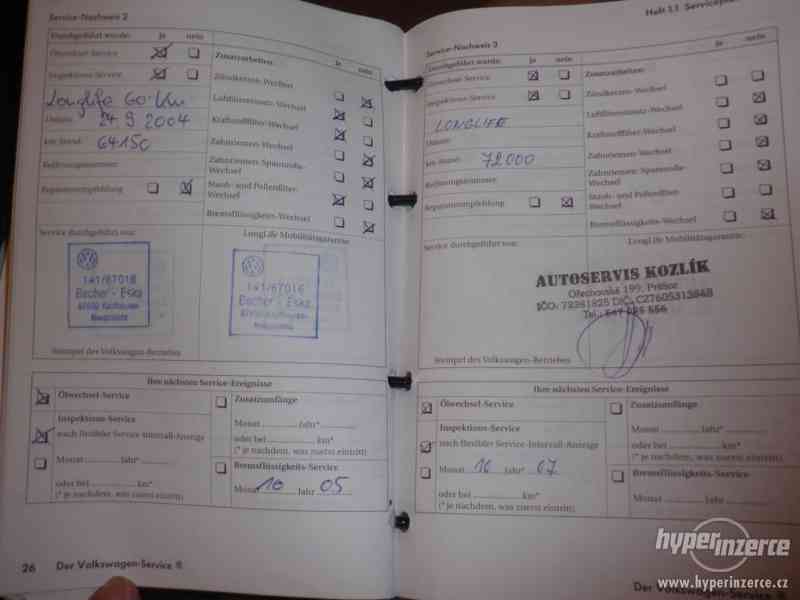 Service-Nachweis 2
Durchgeführt wurde: ja nein
Ölwechsel-Service
Inspektions-Service
Longlife 60.Km
Datum: 24 9 2004
km-Stand: 64150
Reparaturempfehlung
Zusatzarbeiten: ja nein
Zündkerzen-Wechsel
Luftfiltereinsatz-Wechsel
Kraftstofffilter-Wechsel
Zahnriemen-Wechsel
Zahnriemen-Spannrolle-
Wechsel
Staub- und Pollenfilter-
Wechsel
Bremsflüssigkeits-Wechsel
Service durchgeführt von:
LongLife Mobilitätsgarantie
141/67016
Becher - Eska
141/67016
Becher - Eska
Stempel des Volkswagen-Betriebes
Ihre nächsten Service-Ereignisse
Ölwechsel-Service
Inspektions-Service
nach flexibler Service-Intervall-Anzeige
Monat Jahr*
oder bei km*
(* je nachdem, was zuerst eintritt)
Zusatzumfänge
Monat Jahr*
oder bei km*
(* je nachdem, was zuerst eintritt)
Bremsflüssigkeits-Service
Monat 10 Jahr 05
26 Der Volkswagen-Service ®
Heft 1.1
Service-Nachweis 3
Durchgeführt wurde: ja nein
Ölwechsel-Service
Inspektions-Service
LONGLIFE
Datum:
km-Stand: 72000
Reparaturempfehlung
Zusatzarbeiten: ja nein
Zündkerzen-Wechsel
Luftfiltereinsatz-Wechsel
Kraftstofffilter-Wechsel
Zahnriemen-Wechsel
Zahnriemen-Spannrolle-
Wechsel
Staub- und Pollenfilter-
Wechsel
Bremsflüssigkeits-Wechsel
Service durchgeführt von:
LongLife Mobilitätsgarantie
AUTOSERVIS KOZLÍK
Ořechovské 199, Pršice
IČO: 72381825 DIČ: CZ7605313848
Stempel des Volkswagen-Betriebes
Ihre nächsten Service-Ereignisse
Ölwechsel-Service
Inspektions-Service
nach flexibler Service-Intervall-Anzeige
Monat 10 Jahr* 07
oder bei km*
(* je nachdem, was zuerst eintritt)
Zusatzumfänge
Monat Jahr*
oder bei km*
(* je nachdem, was zuerst eintritt)
Bremsflüssigkeits-Service
Monat Jahr
Der Volkswagen-Service ®
hyperinzerce
www.hyperinzerce.cz